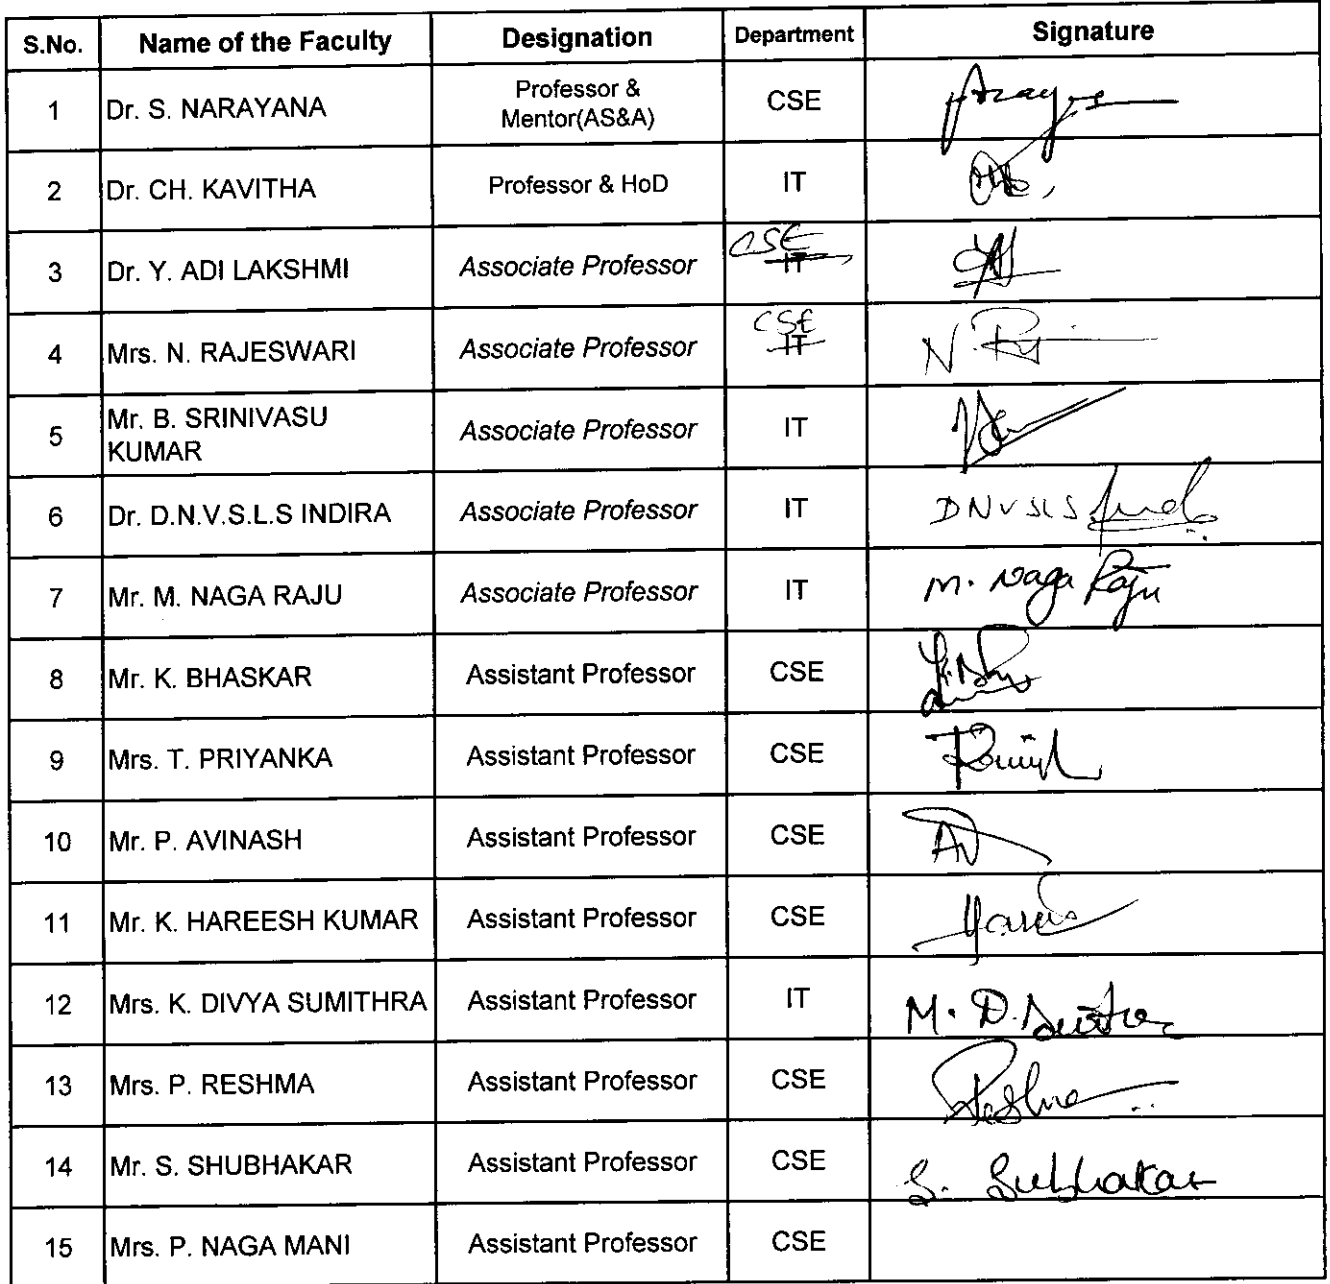 S.No. Name of the Faculty Designation Department Signature
1 Dr. S. NARAYANA Professor & Mentor(AS&A) CSE
2 Dr. CH. KAVITHA Professor & HoD IT
3 Dr. Y. ADI LAKSHMI Associate Professor CSE IT
4 Mrs. N. RAJESWARI Associate Professor CSE IT N.
5 Mr. B. SRINIVASU KUMAR Associate Professor IT
6 Dr. D.N.V.S.L.S INDIRA Associate Professor IT DNVSLS
7 Mr. M. NAGA RAJU Associate Professor IT M. Naga Raju
8 Mr. K. BHASKAR Assistant Professor CSE
9 Mrs. T. PRIYANKA Assistant Professor CSE
10 Mr. P. AVINASH Assistant Professor CSE
11 Mr. K. HAREESH KUMAR Assistant Professor CSE
12 Mrs. K. DIVYA SUMITHRA Assistant Professor IT M. D.
13 Mrs. P. RESHMA Assistant Professor CSE
14 Mr. S. SHUBHAKAR Assistant Professor CSE S. Subhakar
15 Mrs. P. NAGA MANI Assistant Professor CSE